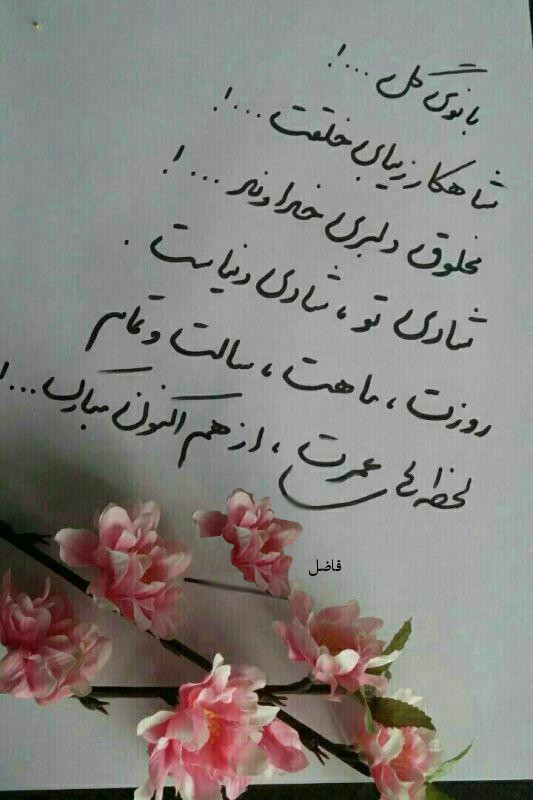 بانوی گل ...!
شاهکار زیبای خلقت ...!
مخلوق دلبری خداوند ...!
شادی تو ، شادی دنیاست .
روزت ، ماهت ، سالت و تمام
لحظه های عمرت ، از هم اکنون مبارک ...!
فاضل